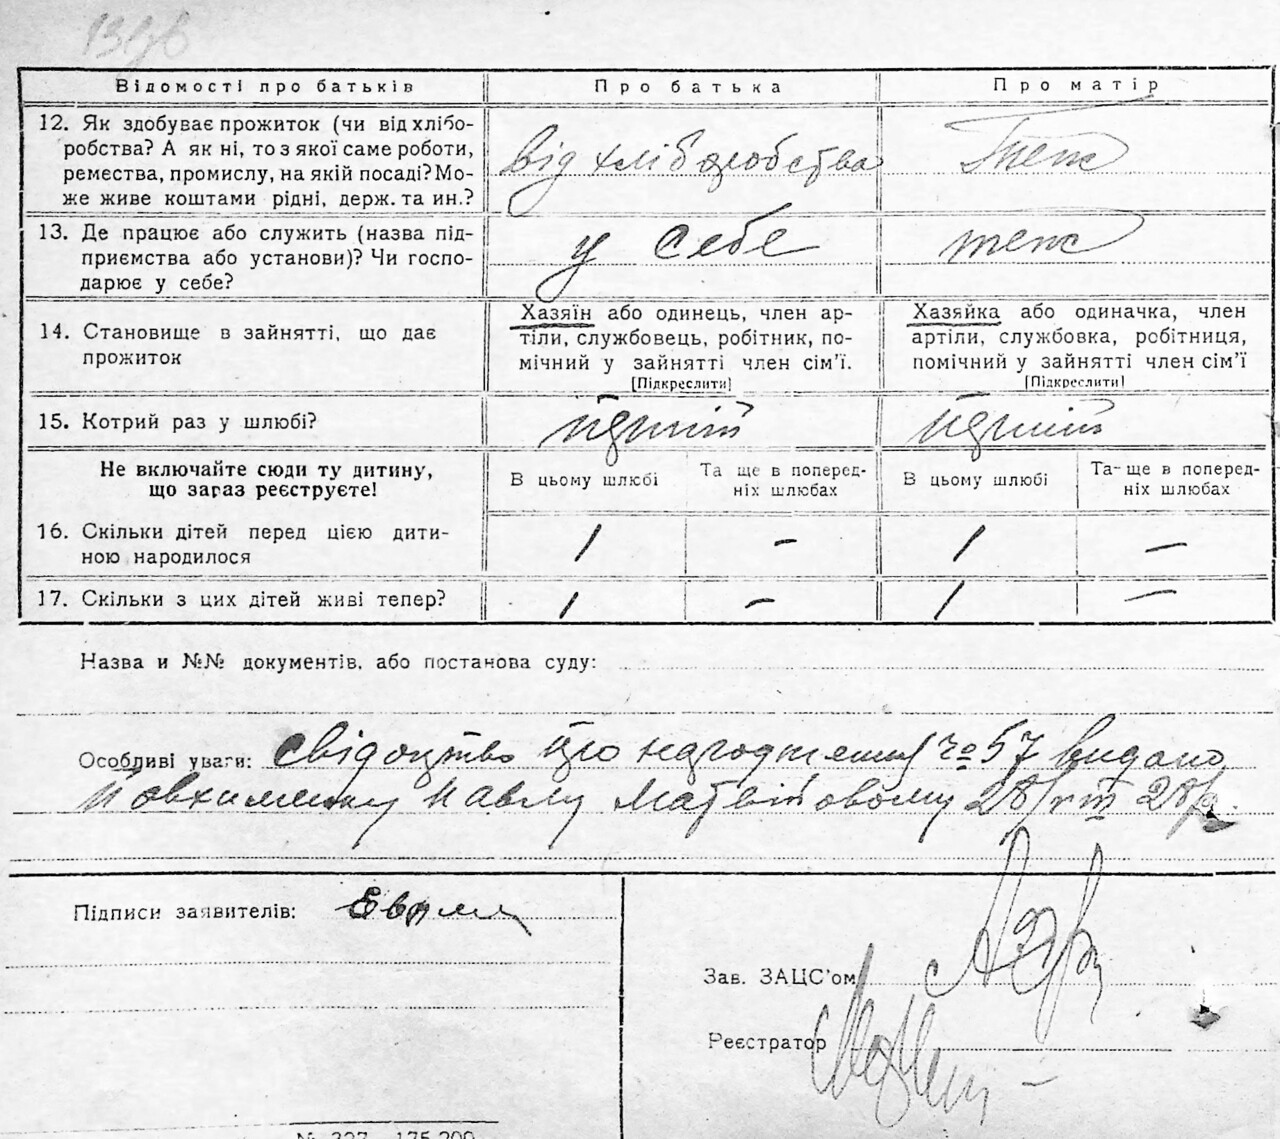 Відомості про батьків
Про батька
Про матір
12. Як здобуває прожиток (чи від хлібо-
робства? А як ні, то з якої саме роботи,
ремества, промислу, на якій посаді? Мо-
же живе коштами рідні, держ. та ин.?
від хліборобства
теж
13. Де працює або служить (назва під-
приємства або установи)? Чи госпо-
дарює у себе?
у себе
теж
14. Становище в зайнятті, що дає
прожиток
Хазяїн або одинець, член ар-
тіли, службовець, робітник, по-
мічний у зайнятті член сім'ї.
[Підкреслити]
Хазяйка або одиначка, член
артіли, службовка, робітниця,
помічний у зайнятті член сім'ї
[Підкреслити]
15. Котрий раз у шлюбі?
Не включайте сюди ту дитину,
що зараз реєструєте!
В цьому шлюбі
Та ще в поперед-
ніх шлюбах
В цьому шлюбі
Та-ще в поперед-
ніх шлюбах
16. Скільки дітей перед цією дити-
ною народилося
1
–
1
–
17. Скільки з цих дітей живі тепер?
1
–
1
–
Назва и №№ документів, або постанова суду:
Особливі уваги: свідоцтво про народження № 57 видано
Павлу Матвійовому 28/VIII 28р.
Підписи заявителів:
Зав. ЗАЦС'ом
Реєстратор
№ 327—175.200